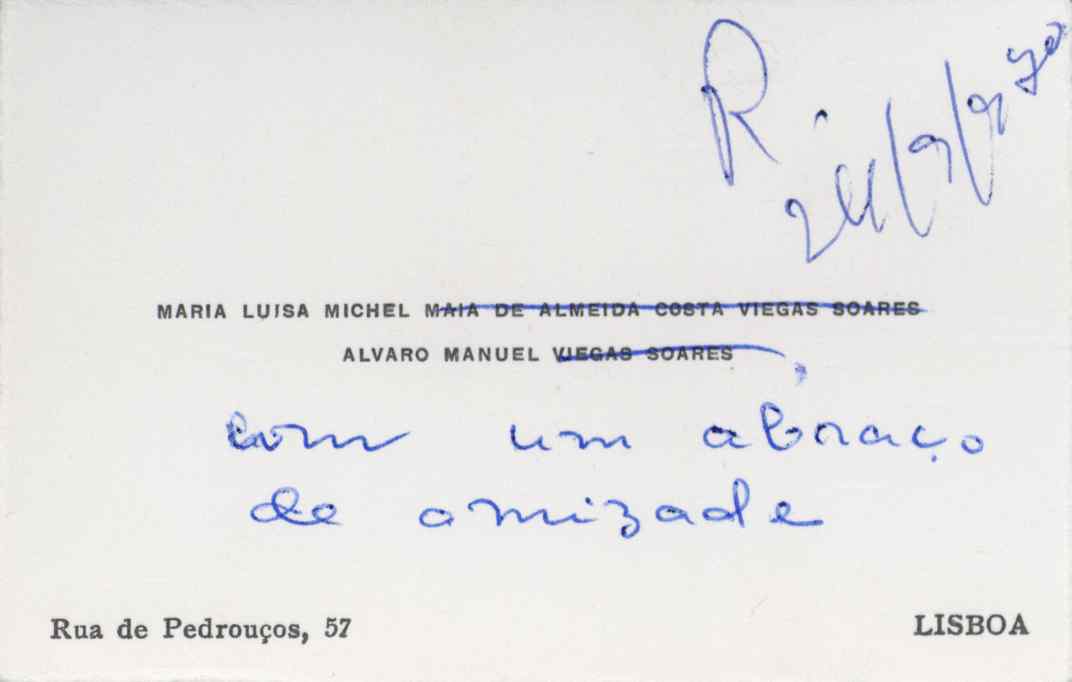 R.
24/9/970
MARIA LUISA MICHEL MAIA DE ALMEIDA COSTA VIEGAS SOARES
ALVARO MANUEL VIEGAS SOARES,
com um abraço
de amizade
Rua de Pedrouços, 57 LISBOA